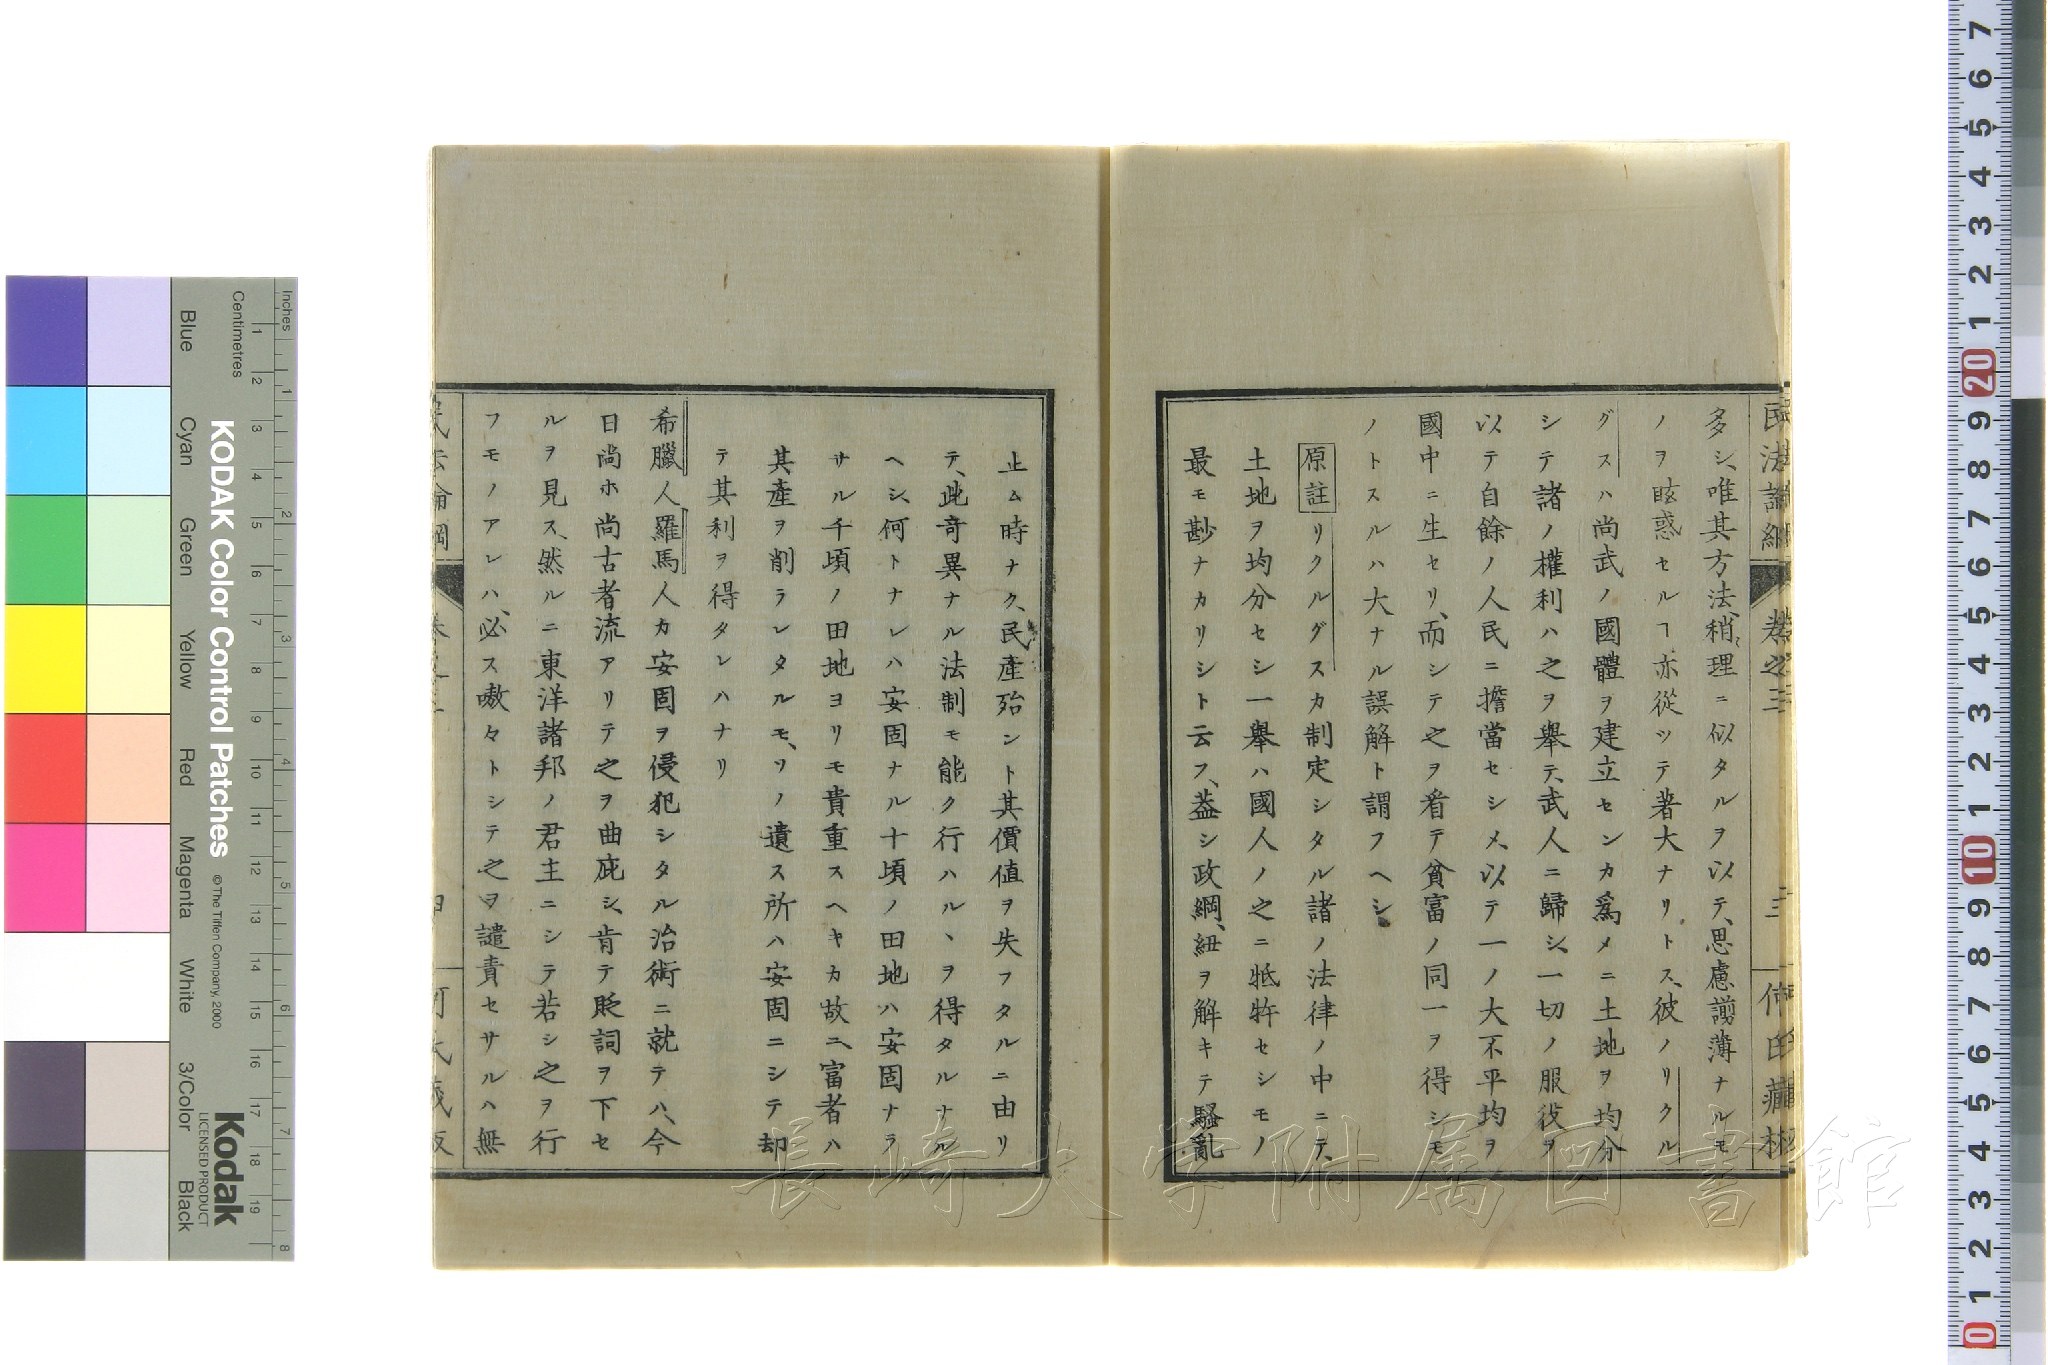 多シ、唯其方法、稍理ニ似タルヲ以テ、思慮謭薄ナルモ
ノヲ眩惑セルヿ亦從ツテ著大ナリトス、彼ノリクル
グスハ尚武ノ國體ヲ建立センカ爲メニ土地ヲ均分
シテ諸ノ權利ハ之ヲ擧テ、武人ニ歸シ、一切ノ服役ヲ
以テ自餘ノ人民ニ擔當セシメ、以テ一ノ大不平均ヲ
國中ニ生セリ、而シテ之ヲ看テ貧富ノ同一ヲ得シモ
ノトスルハ大ナル誤解ト謂フヘシ
原註 リクルグスカ制定シタル諸ノ法律ノ中ニテ、
土地ヲ均分セシ一擧ハ國人ノ之ニ牴牾セシモノ
最モ尠ナカリシト云フ、葢シ政綱、紐ヲ解キテ騷亂
止ム時ナク、民産殆ント其價値ヲ失フタルニ由リ
テ、此奇異ナル法制モ能ク行ハルヽヲ得タルナル
ヘシ、何トナレハ安固ナル十頃ノ田地ハ安固ナラ
サル千頃ノ田地ヨリモ貴重スヘキカ故ニ、富者ハ
其産ヲ削ラレタルモ、ソノ遺ス所ハ安固ニシテ却
テ其利ヲ得タレハナリ
希臘人羅馬人カ安固ヲ侵犯シタル治術ニ就テハ、今
日尚ホ尚古者流アリテ之ヲ曲庇シ、肯テ貶詞ヲ下セ
ルヲ見ス、然ルニ東洋諸邦ノ君主ニシテ若シ之ヲ行
フモノアレハ、必ス嗷々トシテ之ヲ譴責セサルハ無
卷之三
三
長崎大学附属図書館
KODAK Color Control Patches
© The Tiffen Company, 2000
Kodak
LICENSED PRODUCT
Inches
Centimetres
Blue
Cyan
Green
Yellow
Red
Magenta
White
3/Color
Black